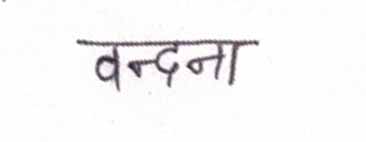 वन्दना